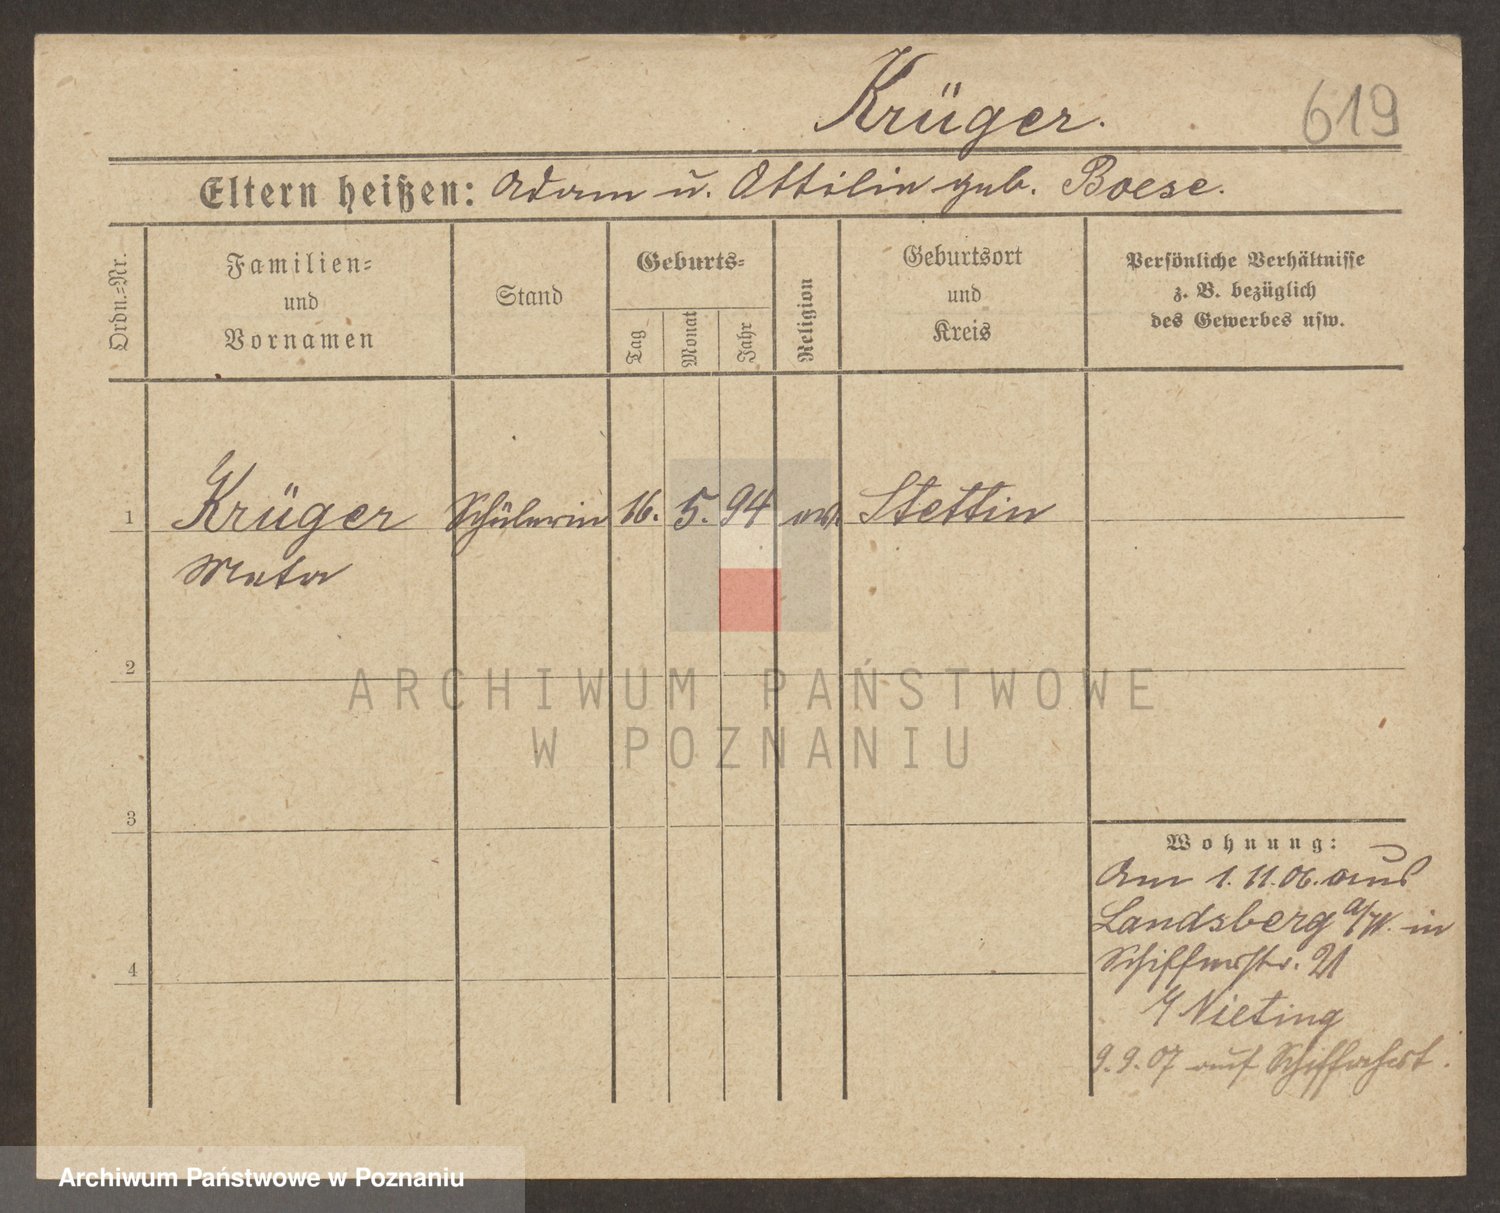 Krüger.
619
Eltern heißen: Adam u. Ottilie geb. Boese.
Ordn.=Nr.
Familien=
und
Vornamen
Stand
Geburts=
Tag
Monat
Jahr
Religion
Geburtsort
und
Kreis
Persönliche Verhältnisse
z. B. bezüglich
des Gewerbes usw.
1 Krüger Schülerin 16. 5. 94 ev. Stettin
Meta
2
ARCHIWUM PAŃSTWOWE
W POZNANIU
3
Wohnung:
Am 1.11.06. aus
Landsberg a/W. in
Schifferstr. 21
4
Nieting
9.9.07 auf Schiffahrt.
Archiwum Państwowe w Poznaniu